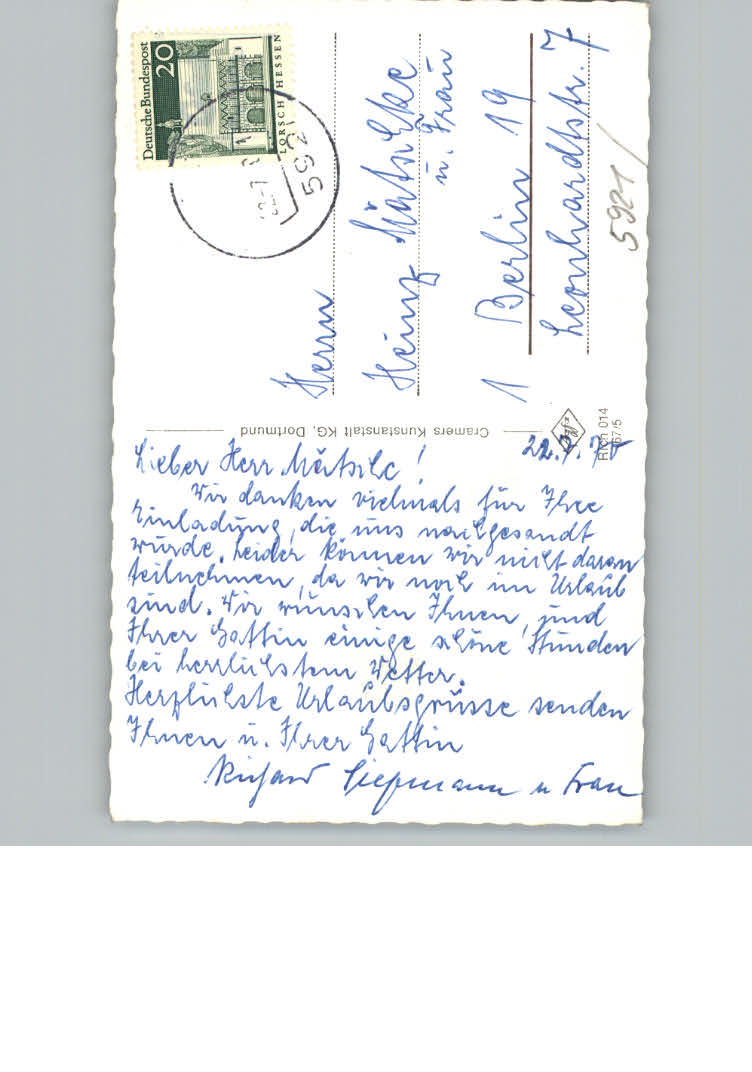 Deutsche Bundespost
20
LORSCH HESSEN
592
Herrn
Heinz Mätschke
u. Frau
1 Berlin 19
Leonhardtstr. 7
5921/
Cramers Kunstanstalt KG, Dortmund
014
67/5
22.7.
Lieber Herr Mätschke!
Wir danken vielmals für Ihre
Einladung, die uns nachgesandt
wurde. Leider können wir nicht daran
teilnehmen, da wir noch im Urlaub
sind. Wir wünschen Ihnen, und
Ihrer Gattin einige schöne Stunden
bei herrlichstem Wetter.
Herzlichste Urlaubsgrüsse senden
Ihnen u. Ihrer Gattin
Richard Siepmann u Frau